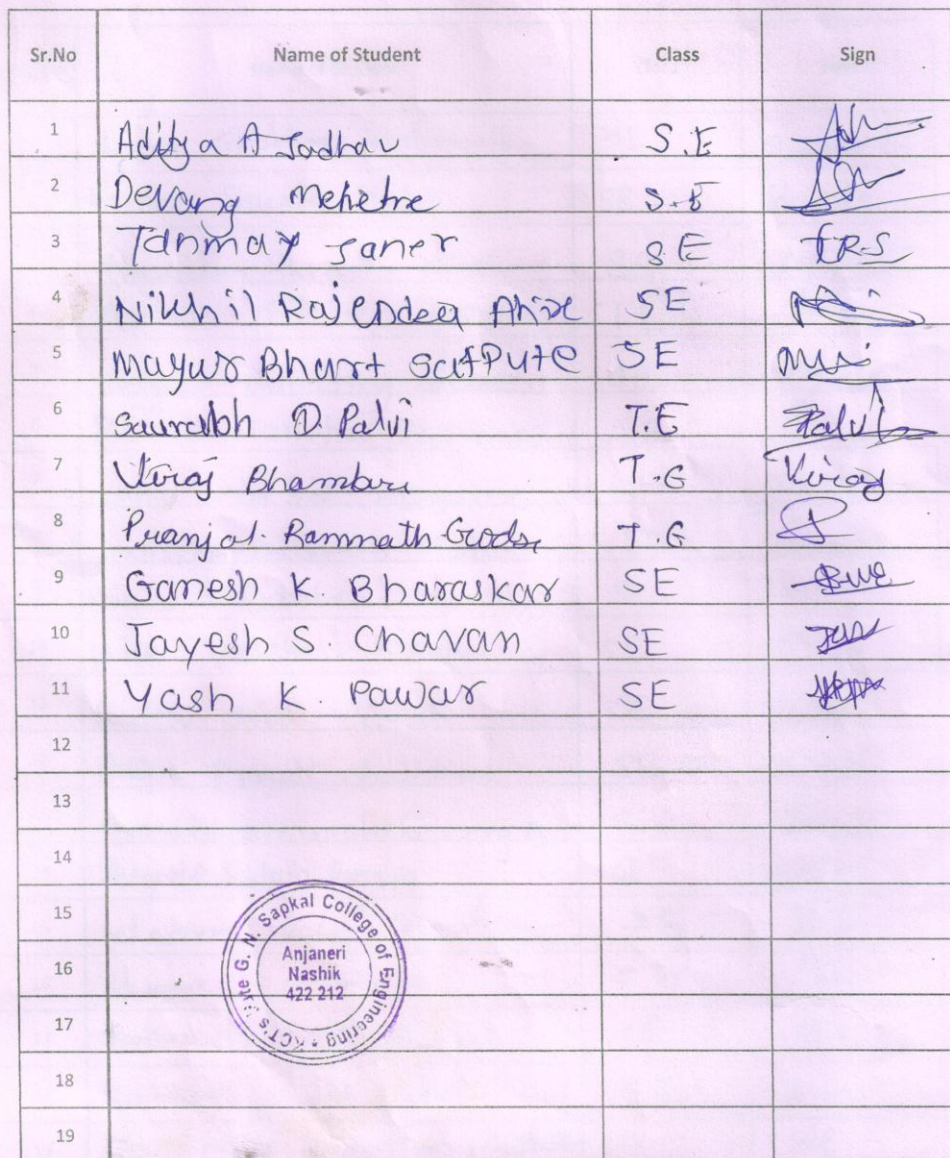 Sr.No Name of Student Class Sign
1 Aditya A Jadhav S.E
2 Devang Mehetre S.E
3 Tanmay Saner SE T.R.S
4 Nikhil Rajendra Ahire SE
5 Mayur Bhart SatPute SE
6 Saurabh D. Palvi T.E Palvi
7 Viraj Bhambare T.E Viraj
8 Pranjal Ramnath Godse T.E
9 Ganesh K. Bharaskar SE
10 Jayesh S. Chavan SE
11 Yash K. Pawar SE
12
13
14
15
16
17
18
19
G. N. Sapkal College of Engineering • KCT's
Anjaneri
Nashik
422 212